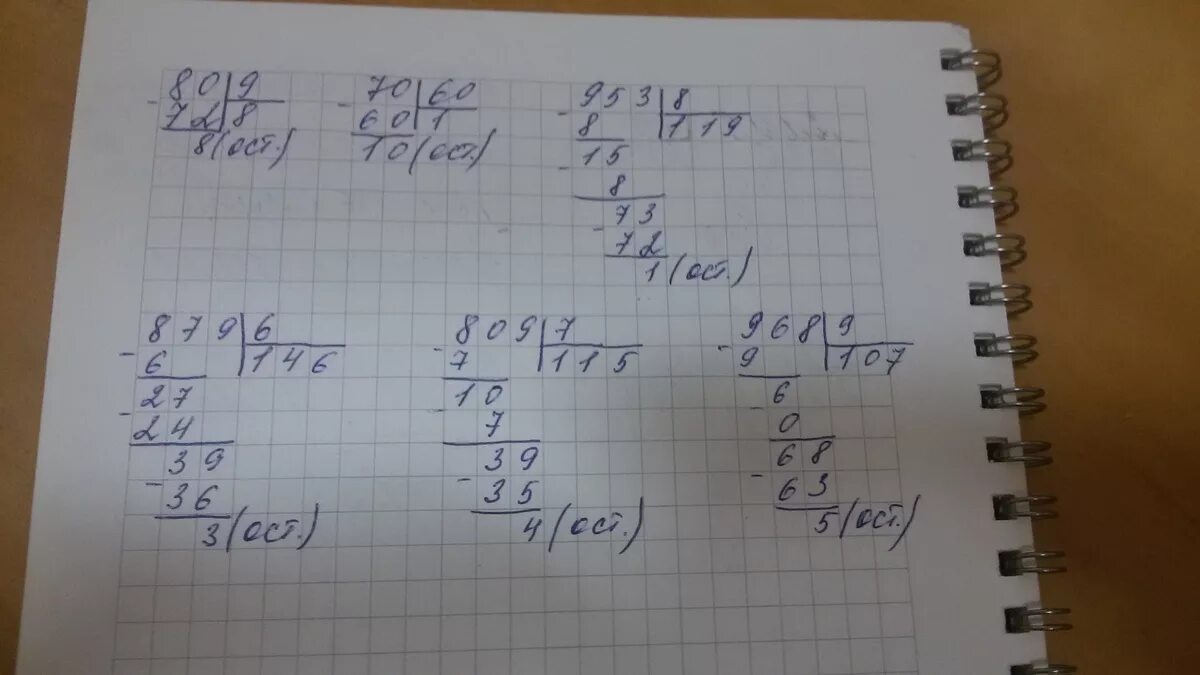 80 9
- 72 8
8 (ост.)
70 60
- 60 1
10 (ост.)
953 8
- 8 119
15
- 8
73
- 72
1 (ост.)
879 6
- 6 146
27
- 24
39
- 36
3 (ост.)
809 7
- 7 115
10
- 7
39
- 35
4 (ост.)
968 9
- 9 107
6
- 0
68
- 63
5 (ост.)